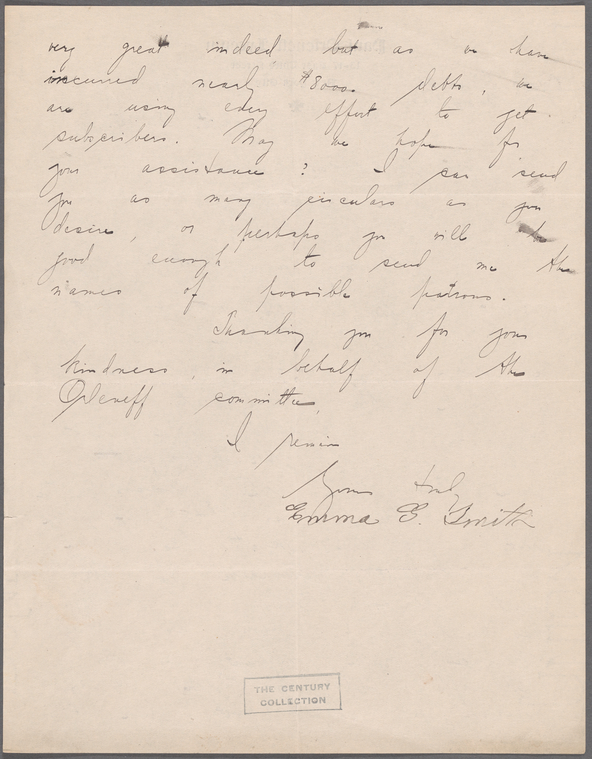 very great indeed, but as we have
incurred nearly $8000. debts, we
are using every effort to get
subscribers. May we hope for
your assistance? I can send
you as many circulars as you
desire, or perhaps you will be
good enough to send me the
names of possible patrons.
Thanking you for your
kindness, in behalf of the
Orleneff committee,
I remain
Yours truly
Emma G. Smith
THE CENTURY
COLLECTION